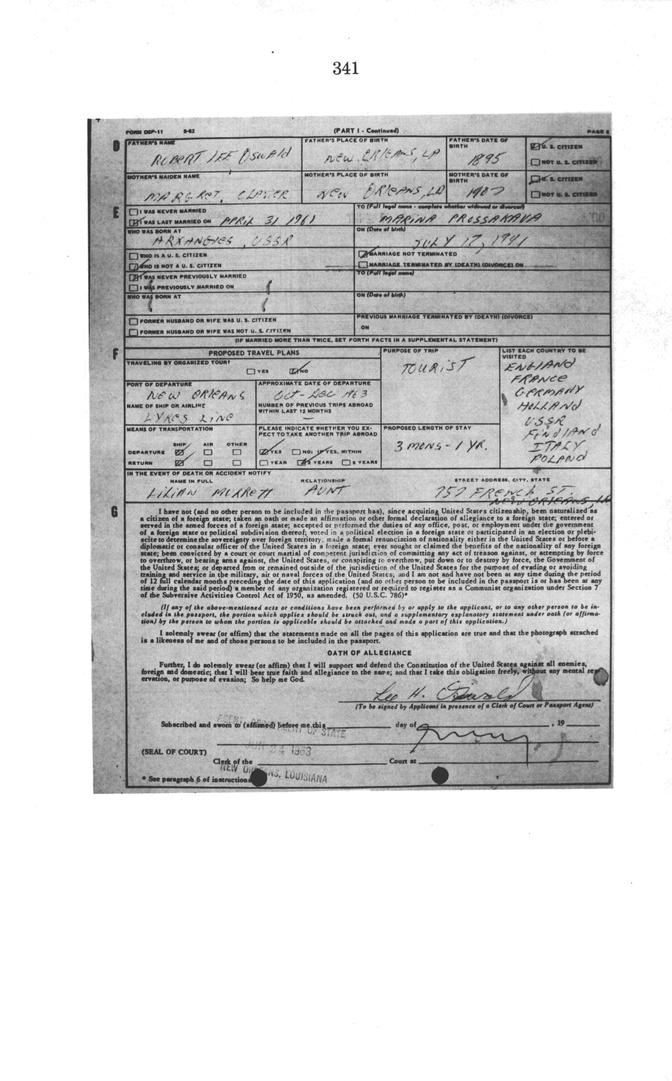 341
FORM DSP-11 5-63 (PART I - Continued) PAGE 2
D FATHER'S NAME FATHER'S PLACE OF BIRTH FATHER'S DATE OF BIRTH U. S. CITIZEN
ROBERT LEE OSWALD NEW ORLEANS, LA 1895 NOT U. S. CITIZEN
MOTHER'S MAIDEN NAME MOTHER'S PLACE OF BIRTH MOTHER'S DATE OF BIRTH U. S. CITIZEN
MARGRET, CLAVIER NEW ORLEANS, LA 1907 NOT U. S. CITIZEN
E I WAS NEVER MARRIED TO (Full legal name - complete whether widowed or divorced)
I WAS LAST MARRIED ON APRIL 31 1961 MARINA PRUSSAKAVA
WHO WAS BORN AT ON (Date of birth)
ARXANGIES, USSR JULY 17, 1941
WHO IS A U. S. CITIZEN MARRIAGE NOT TERMINATED
WHO IS NOT A U. S. CITIZEN MARRIAGE TERMINATED BY (DEATH) (DIVORCE) ON
I WAS NEVER PREVIOUSLY MARRIED TO (Full legal name)
I WAS PREVIOUSLY MARRIED ON
WHO WAS BORN AT ON (Date of birth)
FORMER HUSBAND OR WIFE WAS U. S. CITIZEN PREVIOUS MARRIAGE TERMINATED BY (DEATH) (DIVORCE)
FORMER HUSBAND OR WIFE WAS NOT U. S. CITIZEN ON
(IF MARRIED MORE THAN TWICE, SET FORTH FACTS IN A SUPPLEMENTAL STATEMENT)
F PROPOSED TRAVEL PLANS PURPOSE OF TRIP LIST EACH COUNTRY TO BE VISITED
TRAVELING BY ORGANIZED TOUR? TOURIST ENGLAND
YES NO FRANCE
PORT OF DEPARTURE APPROXIMATE DATE OF DEPARTURE GERMANY
NEW ORLEANS OCT-DEC 1963 HOLLAND
NAME OF SHIP OR AIRLINE NUMBER OF PREVIOUS TRIPS ABROAD WITHIN LAST 12 MONTHS USSR
LYKES LINE — FINDLAND
MEANS OF TRANSPORTATION PLEASE INDICATE WHETHER YOU EXPECT TO TAKE ANOTHER TRIP ABROAD PROPOSED LENGTH OF STAY ITALY
SHIP AIR OTHER 3 MONS - 1 YR. POLAND
DEPARTURE YES NO; IF YES, WITHIN
RETURN 1 YEAR 2 YEARS 5 YEARS
IN THE EVENT OF DEATH OR ACCIDENT NOTIFY
NAME IN FULL RELATIONSHIP STREET ADDRESS, CITY, STATE
LILIAN MURRETT AUNT 757 FRENCH ST.
NEW ORLEANS, LA
G I have not (and no other person to be included in the passport has), since acquiring United States citizenship, been naturalized as
a citizen of a foreign state; taken an oath or made an affirmation or other formal declaration of allegiance to a foreign state; entered or
served in the armed forces of a foreign state; accepted or performed the duties of any office, post, or employment under the government
of a foreign state or political subdivision thereof; voted in a political election in a foreign state or participated in an election or plebi-
scite to determine the sovereignty over foreign territory; made a formal renunciation of nationality either in the United States or before a
diplomatic or consular officer of the United States in a foreign state; ever sought or claimed the benefits of the nationality of any foreign
state; been convicted by a court or court martial of competent jurisdiction of committing any act of treason against, or attempting by force
to overthrow, or bearing arms against, the United States, or conspiring to overthrow, put down or to destroy by force, the Government of
the United States; or departed from or remained outside of the jurisdiction of the United States for the purpose of evading or avoiding
training and service in the military, air or naval forces of the United States; and I am not and have not been at any time during the period
of 12 full calendar months preceding the date of this application (and no other person to be included in the passport is or has been at any
time during the said period) a member of any organization registered or required to register as a Communist organization under Section 7
of the Subversive Activities Control Act of 1950, as amended. (50 U.S.C. 786)*
(If any of the above-mentioned acts or conditions have been performed by or apply to the applicant, or to any other person to be in-
cluded in the passport, the portion which applies should be struck out, and a supplementary explanatory statement under oath (or affirma-
tion) by the person to whom the portion is applicable should be attached and made a part of this application.)
I solemnly swear (or affirm) that the statements made on all the pages of this application are true and that the photograph attached
is a likeness of me and of those persons to be included in the passport.
OATH OF ALLEGIANCE
Further, I do solemnly swear (or affirm) that I will support and defend the Constitution of the United States against all enemies,
foreign and domestic; that I will bear true faith and allegiance to the same; and that I take this obligation freely, without any mental res-
ervation, or purpose of evasion; So help me God.
Lee H. Oswald
(To be signed by Applicant in presence of a Clerk of Court or Passport Agent)
Subscribed and sworn to (affirmed) before me this day of , 19
OF STATE
(SEAL OF COURT) JUN 24 1963
Clerk of the Court at
NEW ORLEANS, LOUISIANA
* See paragraph 6 of instructions